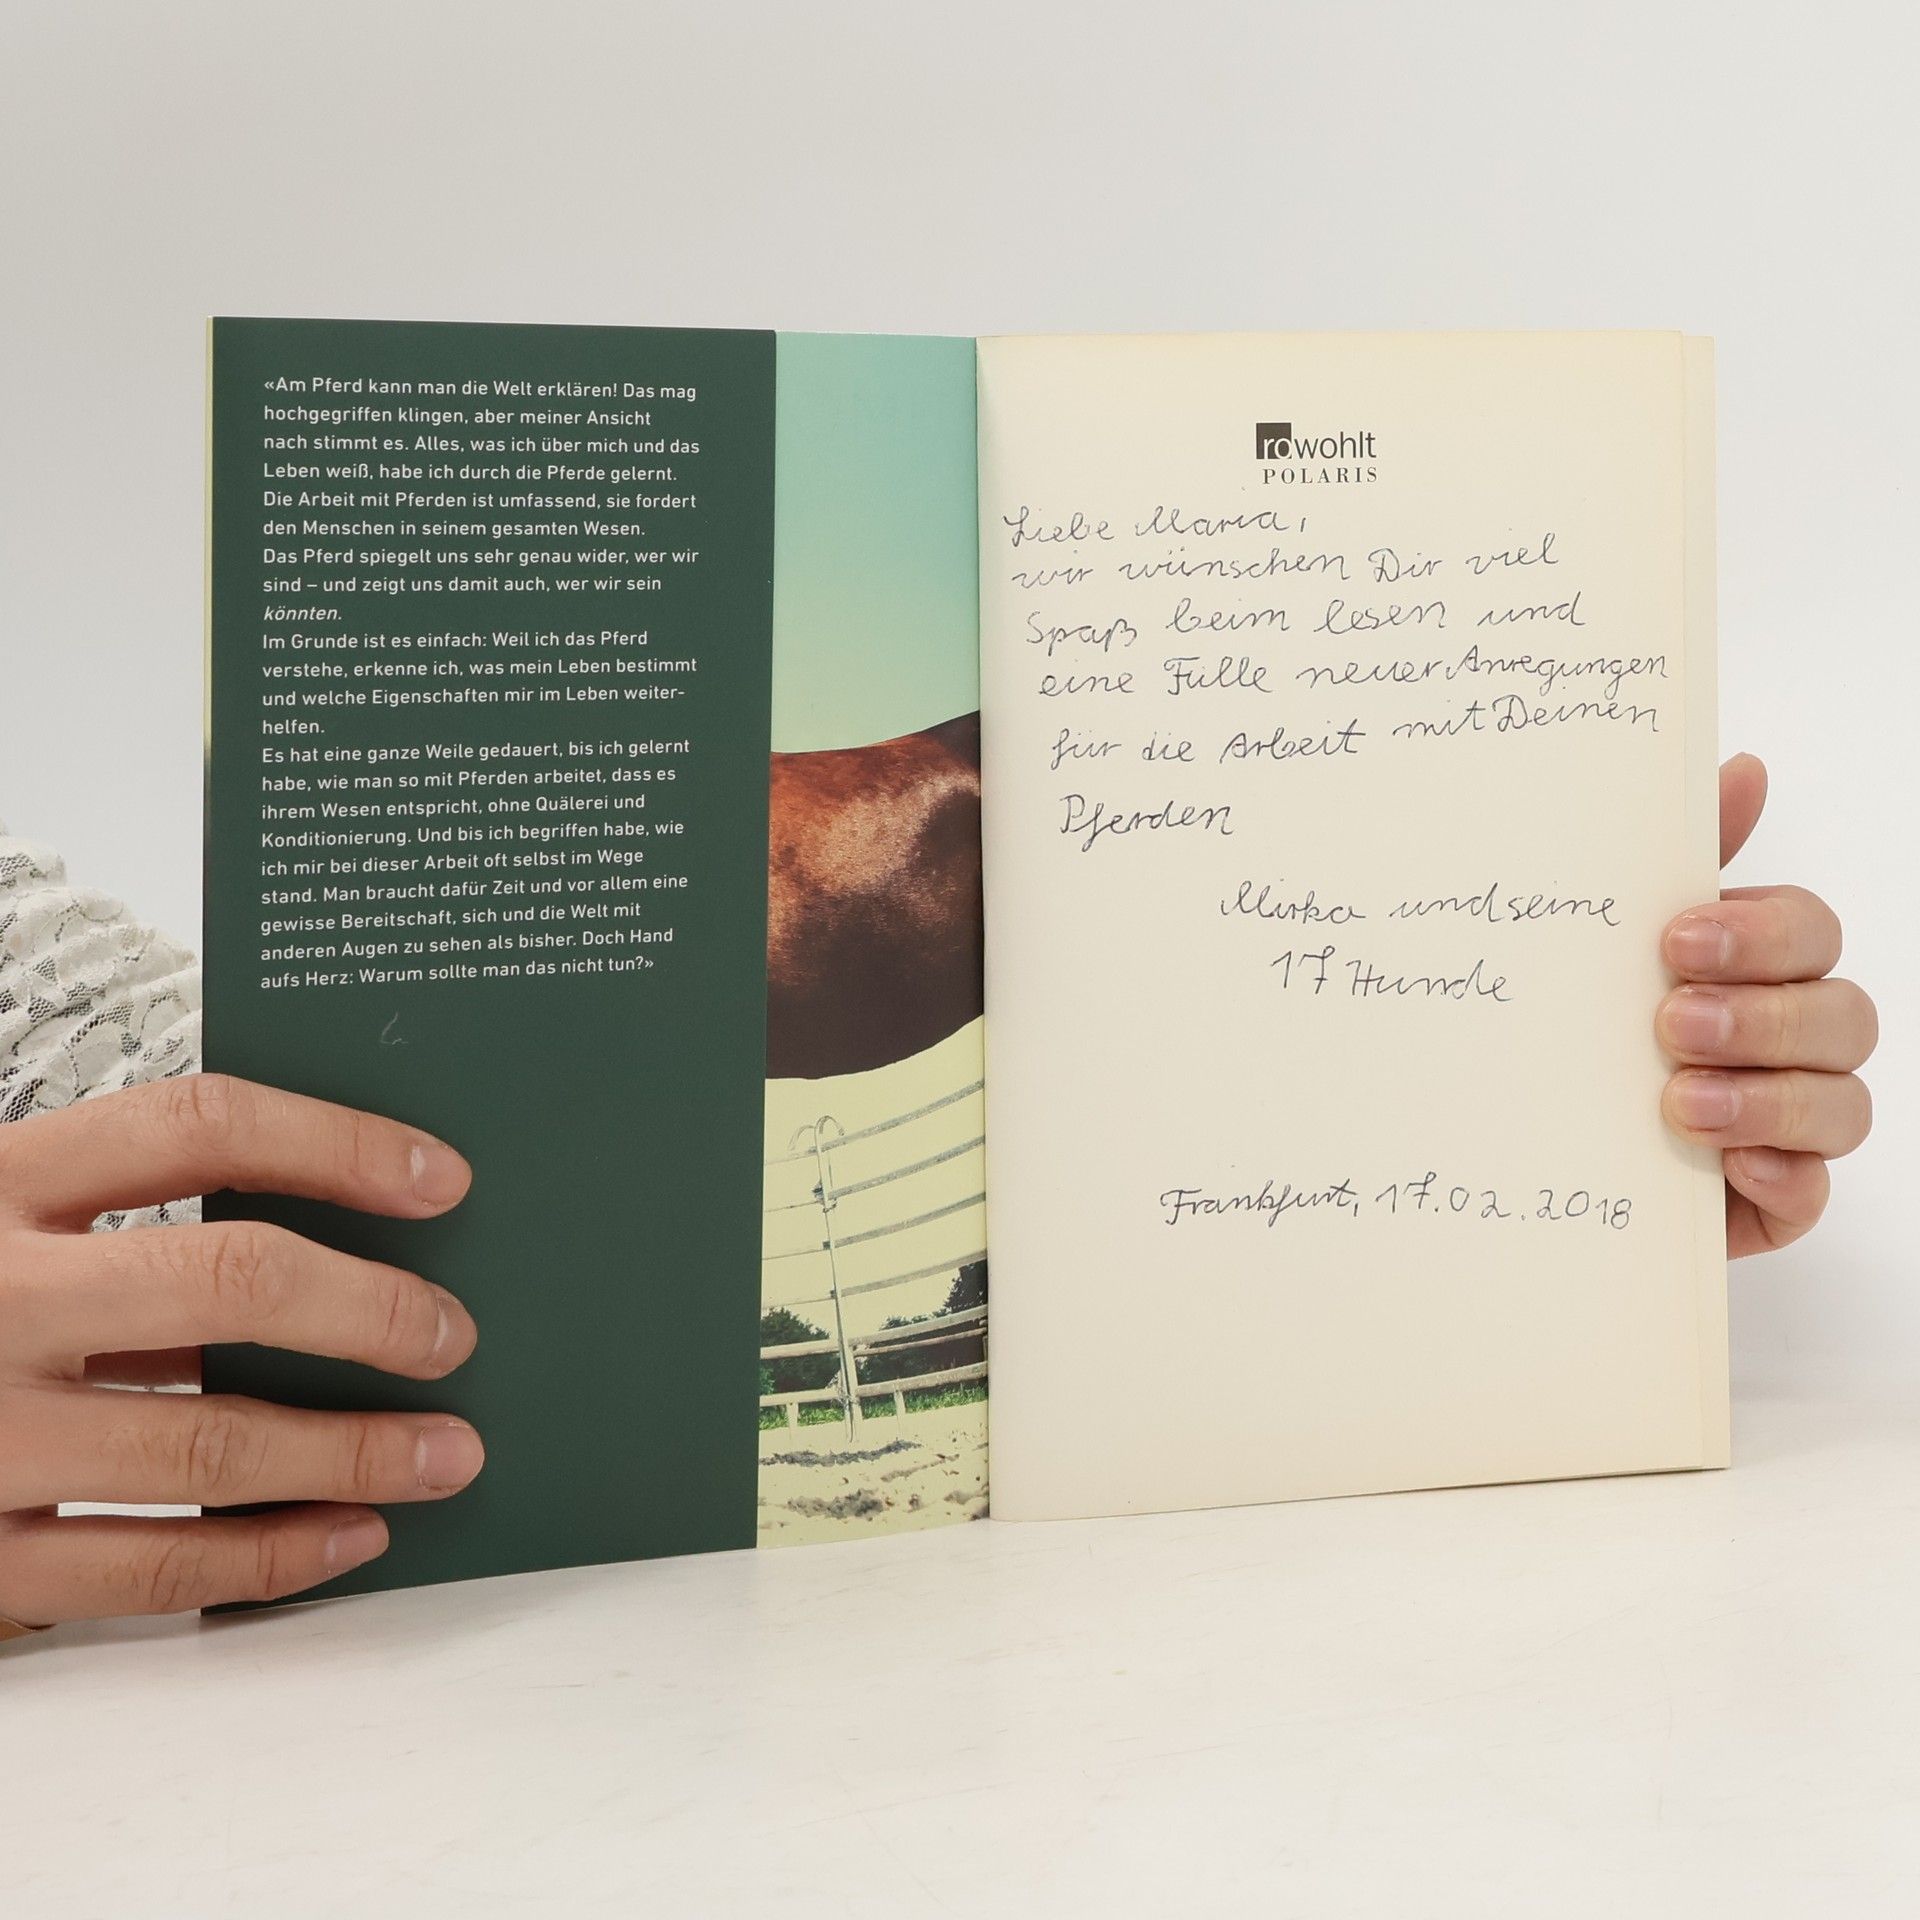 «Am Pferd kann man die Welt erklären! Das mag
hochgegriffen klingen, aber meiner Ansicht
nach stimmt es. Alles, was ich über mich und das
Leben weiß, habe ich durch die Pferde gelernt.
Die Arbeit mit Pferden ist umfassend, sie fordert
den Menschen in seinem gesamten Wesen.
Das Pferd spiegelt uns sehr genau wider, wer wir
sind – und zeigt uns damit auch, wer wir sein
könnten.
Im Grunde ist es einfach: Weil ich das Pferd
verstehe, erkenne ich, was mein Leben bestimmt
und welche Eigenschaften mir im Leben weiter-
helfen.
Es hat eine ganze Weile gedauert, bis ich gelernt
habe, wie man so mit Pferden arbeitet, dass es
ihrem Wesen entspricht, ohne Quälerei und
Konditionierung. Und bis ich begriffen habe, wie
ich mir bei dieser Arbeit oft selbst im Wege
stand. Man braucht dafür Zeit und vor allem eine
gewisse Bereitschaft, sich und die Welt mit
anderen Augen zu sehen als bisher. Doch Hand
aufs Herz: Warum sollte man das nicht tun?»
rowohlt
POLARIS
Liebe Maria,
wir wünschen Dir viel
Spaß beim lesen und
eine Fülle neuer Anregungen
für die Arbeit mit Deinen
Pferden
Mirko und seine
17 Hunde
Frankfurt, 17.02.2018